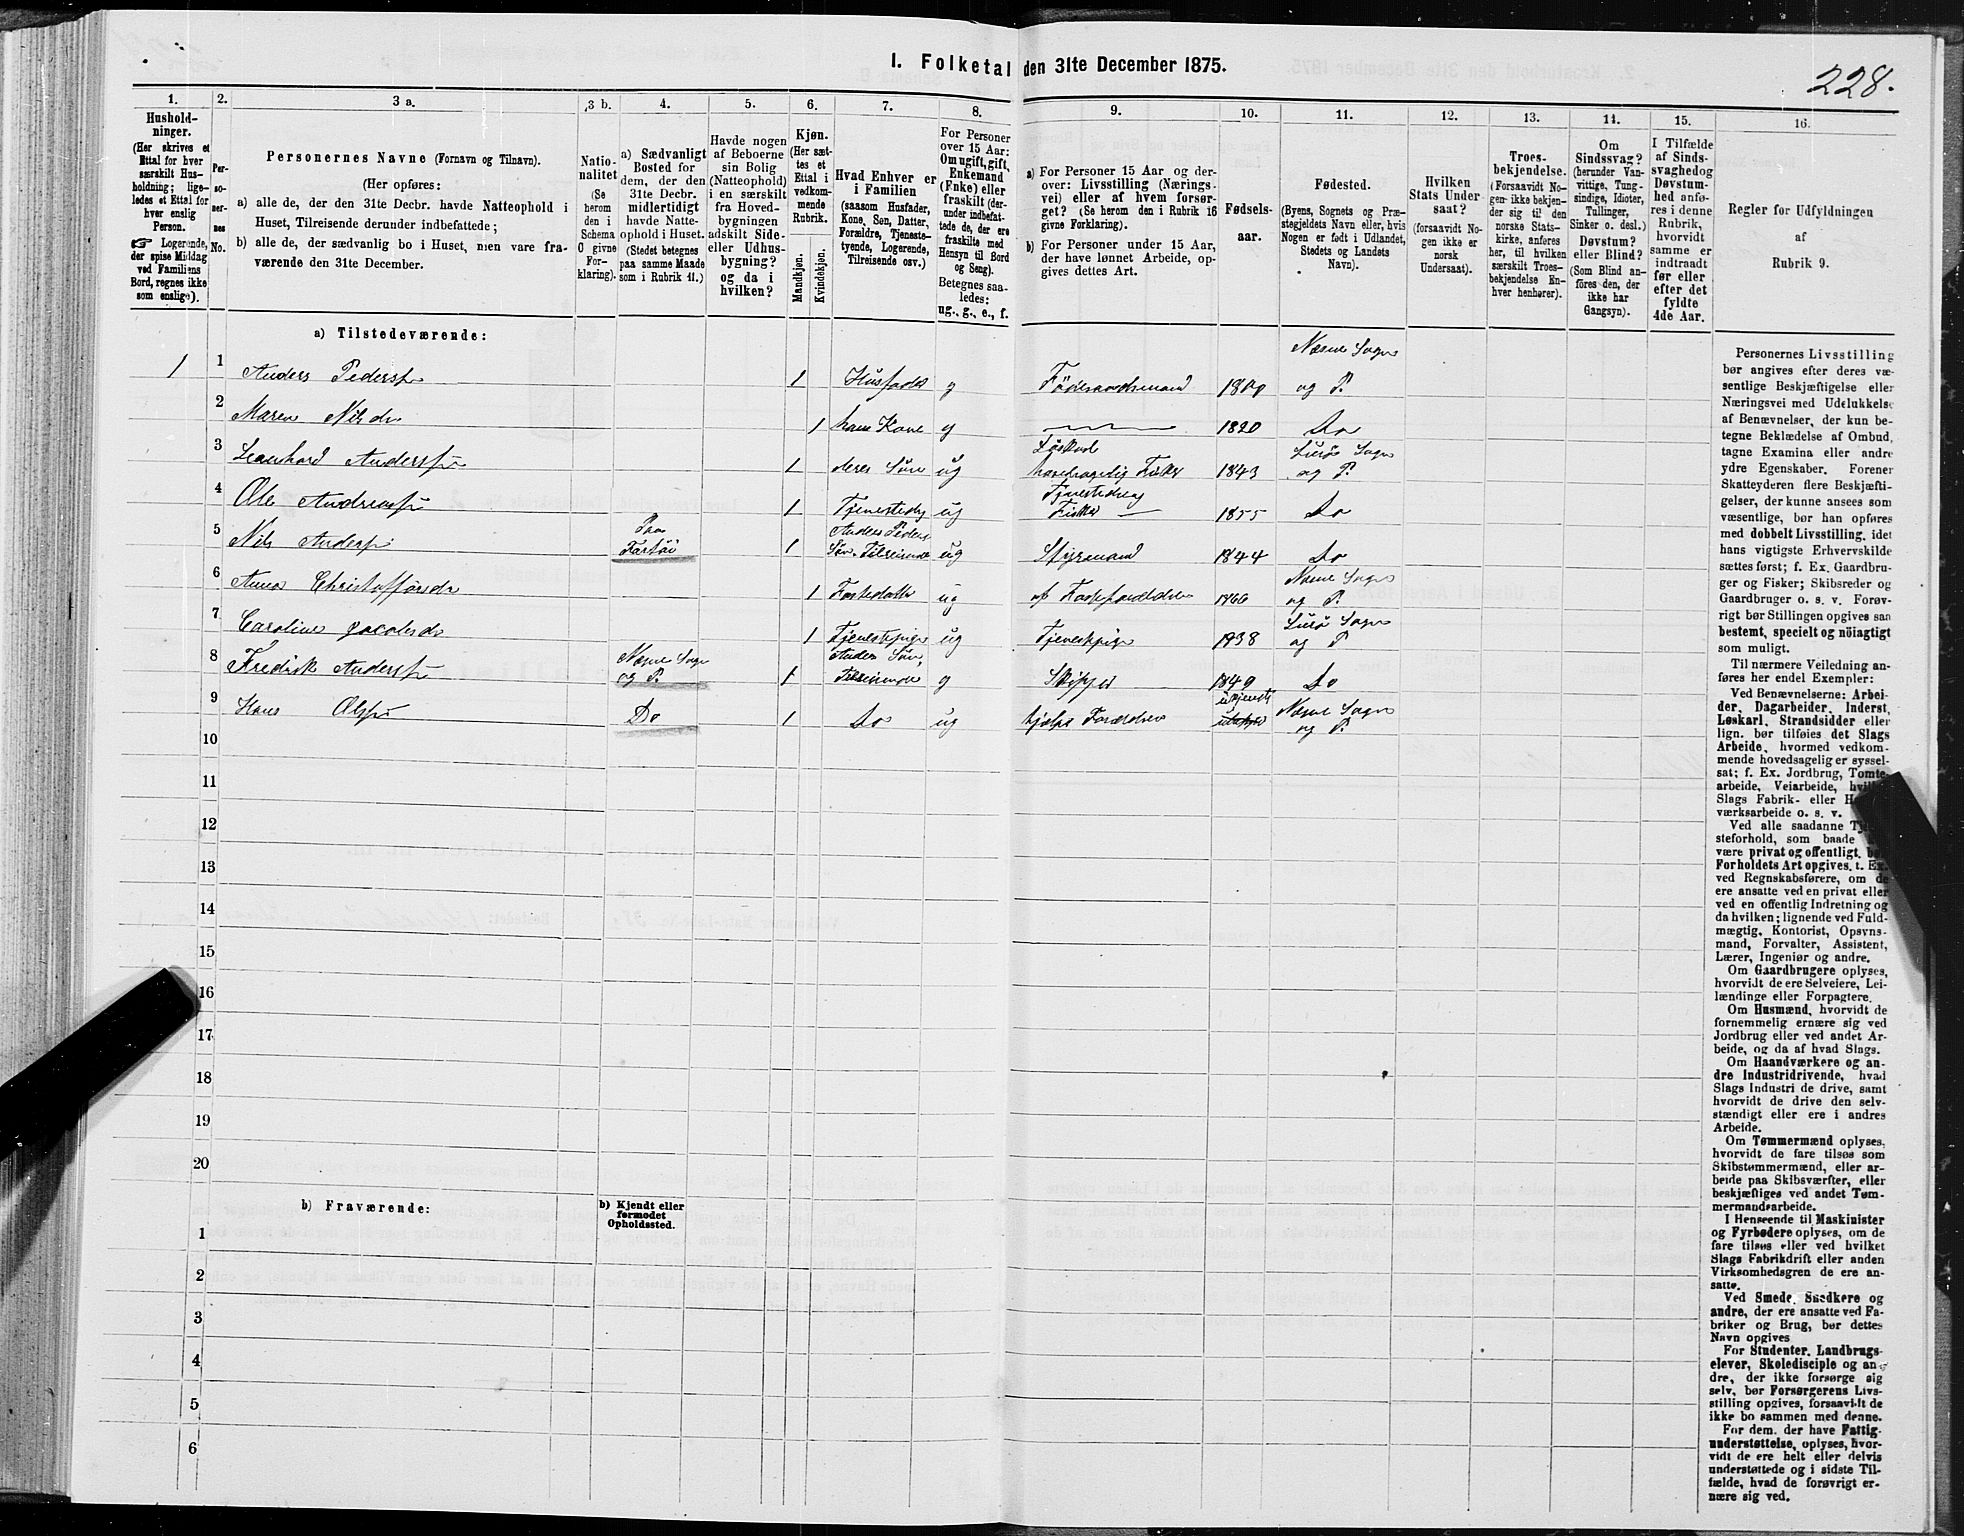 I. Folketal den 31te December 1875.
228.
1.
Hushold-
ninger.
(Her skrives et
Ettal for hver
særskilt Hus-
holdning; lige-
ledes et Ettal for
hver enslig
Person.
☞ Logerende,
der spise Middag
ved Familiens
Bord, regnes ikke
som enslige).
2.
Per-
so-
ner-
nes
No.
3 a.
Personernes Navne (Fornavn og Tilnavn).
(Her opføres:
a) alle de, der den 31te Decbr. havde Natteophold i
Huset, Tilreisende derunder indbefattede;
b) alle de, der sædvanlig bo i Huset, men vare fra-
værende den 31te December.
3 b.
Natio-
nalitet
(Se
herom
den i
Schema
O givne
For-
klaring).
4.
a) Sædvanligt
Bosted for
dem, der den
31te Decbr.
midlertidigt
havde Natte-
ophold i Huset.
(Stedet betegnes
paa samme Maade
som i Rubrik 11.)
5.
Havde nogen
af Beboerne
sin Bolig
(Natteophold)
i en særskilt
fra Hoved-
bygningen
adskilt Side-
eller Udhus-
bygning?
og da i
hvilken?
6.
Kjøn.
(Her sæt-
tes et
Ettal i
vedkom-
mende
Rubrik.
Mandkjøn.
Kvindekjøn.
7.
Hvad Enhver er
i Familien
(saasom Husfader,
Kone, Søn, Datter,
Forældre, Tjeneste-
tyende, Logerende,
Tilreisende osv.)
8.
For Personer
over 15 Aar:
Om ugift, gift,
Enkemand
(Fnke) eller
fraskilt (der-
under indbefat-
tede de, der ere
fraskilte med
Hensyn til Bord
og Seng).
Betegnes saa-
ledes:
ug., g., e., f.
9.
a) For Personer 15 Aar og der-
over: Livsstilling (Nærings-
vei) eller af hvem forsør-
get? (Se herom den i Rubrik 16
givne Forklaring).
b) For Personer under 15 Aar,
der have lønnet Arbeide, op-
gives dettes Art.
10.
Fødsels-
aar.
11.
Fødested.
(Byens, Sognets og Præ-
stegjeldets Navn eller, hvis
Nogen er født i Udlandet,
Stedets og Landets
Navn).
12.
Hvilken
Stats Under-
saat?
(forsaavidt No-
gen ikke er
norsk
Undersaat).
13.
Troes-
bekjendelse.
(Forsaavidt No-
gen ikke bekjen-
der sig til den
norske Stats-
kirke, anføres
her, til hvilken
særskilt Troes-
bekjendelse En-
hver henhører).
14.
Om
Sindssvag?
(herunder Van-
vittige, Tung-
sindige, Idioter,
Tullinger,
Sinker o. desl.)
Døvstum?
eller Blind?
(Som Blind an-
føres den, der
ikke har
Gangsyn).
15.
I Tilfælde
af Sinds-
svaghedog
Døvstum-
hed anfø-
res i denne
Rubrik,
hvorvidt
samme er
indtraadt
før eller
efter det
fyldte
4de Aar.
16.
Regler for Udfyldningen
af
Rubrik 9.
a) Tilstedeværende:
Næsne Sogn
1 1 Anders Peders 1 Husfader g 1800 og P.
2 Maren Nilsdr 1 hans Kone g 1820 Do
Lurø Sogn
3 Leonhard Anders 1 deres Søn ug Fisker 1843 og P.
Tjenestedreng
4 Ole Andreas 1 ug Fisker 1855 Do
Paa Anders Peders
5 Nils Anders Fartøi 1 Søn Tilreisende ug Styrmand 1844 Do
Næsne Sogn
6 Anna Christoffersdr 1 ug af 1866 og P.
Lurø Sogn
7 Caroline Jacobsdr 1 Tjenestpige ug Tjenestpige 1838 og P
Næsne Sogn Anders Søn,
8 Fredrik Anders og P. 1 Tilreisende g Skipper 1849 Do
Næsne Sogn
9 Hans Ols Do 1 Do ug hjelper og P.
10
11
12
13
14
15
16
17
18
19
20
b) Fraværende:
b) Kjendt eller
formodet
Opholdssted.
1
2
3
4
5
6
Personernes Livsstilling
bør angives efter deres væ-
sentlige Beskjæftigelse eller
Næringsvei med Udelukkelse
af Benævnelser, der kun be-
tegne Beklædelse af Ombud,
tagne Examina eller andre
ydre Egenskaber. Forener
Skatteyderen flere Beskjæfti-
gelser, der kunne ansees som
væsentlige, bør han opføres
med dobbelt Livsstilling, idet
hans vigtigste Erhvervskilde
sættes først; f. Ex. Gaardbru-
ger og Fisker; Skibsreder og
Gaardbruger o. s. v. Forøv-
rigt bør Stillingen opgives saa
bestemt, specielt og nöiagtigt
som muligt.
Til nærmere Veiledning an-
føres her endel Exempler:
Ved Benævnelserne: Arbei-
der, Dagarbeider, Inderst,
Løskarl, Strandsidder eller
lign. bør tilføies det Slags
Arbeide, hvormed vedkom-
mende hovedsagelig er syssel-
sat; f. Ex. Jordbrug, Tomte-
arbeide, Veiarbeide,
Slags Fabrik- eller
værksarbeide o. s. v.
Ved alle saadanne
steforhold, som baade
være privat og offentligt,
Forholdets Art opgives, t. Ex.
ved Regnskabsførere, om de
ere ansatte ved en privat eller
ved en offentlig Indretning og
da hvilken; lignende ved Fuld-
mægtig, Kontorist, Opsyns-
mand, Forvalter, Assistent,
Lærer, Ingeniør og andre.
Om Gaardbrugere oplyses,
hvorvidt de ere Selveiere, Lei-
lændinge eller Forpagtere.
Om Husmænd, hvorvidt de
fornemmelig ernære sig ved
Jordbrug eller ved andet Ar-
beide, og da af hvad Slags.
Om Haandværkere og an-
dre Industridrivende, hvad
Slags Industri de drive, samt
hvorvidt de drive den selv-
stændigt eller ere i andres
Arbeide.
Om Tømmermænd oplyses,
hvorvidt de fare tilsøs som
Skibstømmermænd, eller ar-
beide paa Skibsværfter, eller
beskjæftiges ved andet Tøm-
mermandsarbeide.
I Henseende til Maskinister
og Fyrbødere oplyses, om de
fare tilsøs eller ved hvilket
Slags Fabrikdrift eller anden
Virksomhedsgren de ere an-
satte.
Ved Smede, Snedkere og
andre, der ere ansatte ved Fa-
briker og Brug, bør dettes
Navn opgives
For Studenter, Landbrugs-
elever, Skoledisciple og an-
dre, der ikke forsørge sig
selv, bør Forsørgerens Livs-
stilling opgives, forsaavidt de
ikke bo sammen med denne.
For dem, der have Fattig-
understøttelse, oplyses, hvor-
vidt de ere helt eller delvis
understøttede og i sidste Til-
fælde, hvad de forøvrigt er-
nære sig ved.